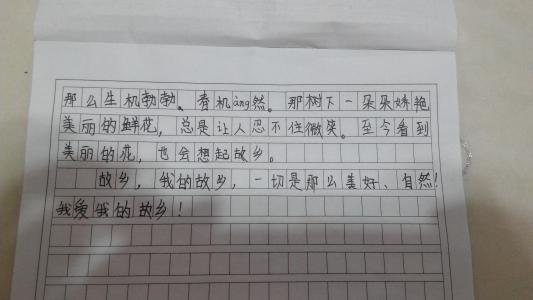 那么生机勃勃、春机àng然。那树下一朵朵娇艳
美丽的鲜花，总是让人忍不住微笑。至今看到
美丽的花，也会想起故乡。
故乡，我的故乡，一切是那么美好、自然！
我爱我的故乡！